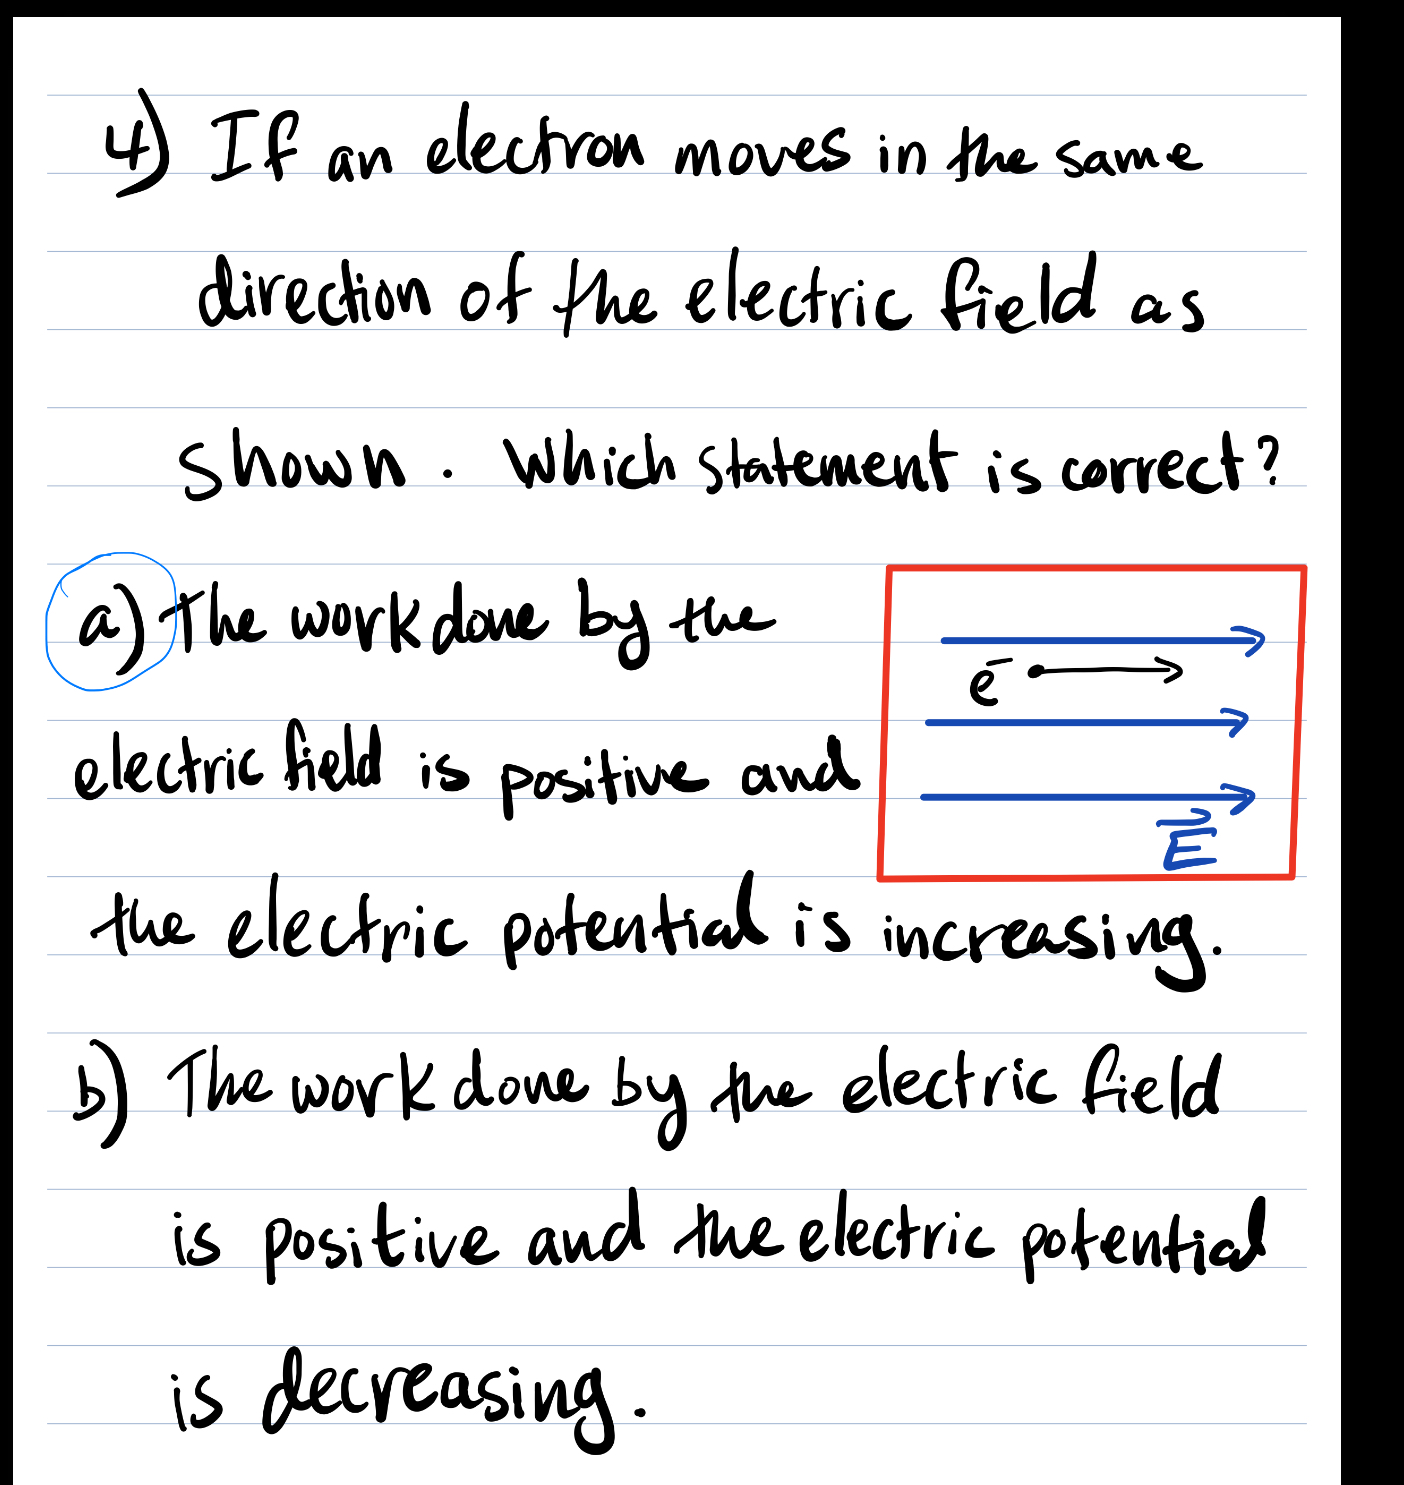 4) If an electron moves in the same
direction of the electric field as
shown. Which statement is correct?
a) The work done by the
electric field is positive and
the electric potential is increasing.
e⁻
E⃗
b) The work done by the electric field
is positive and the electric potential
is decreasing.